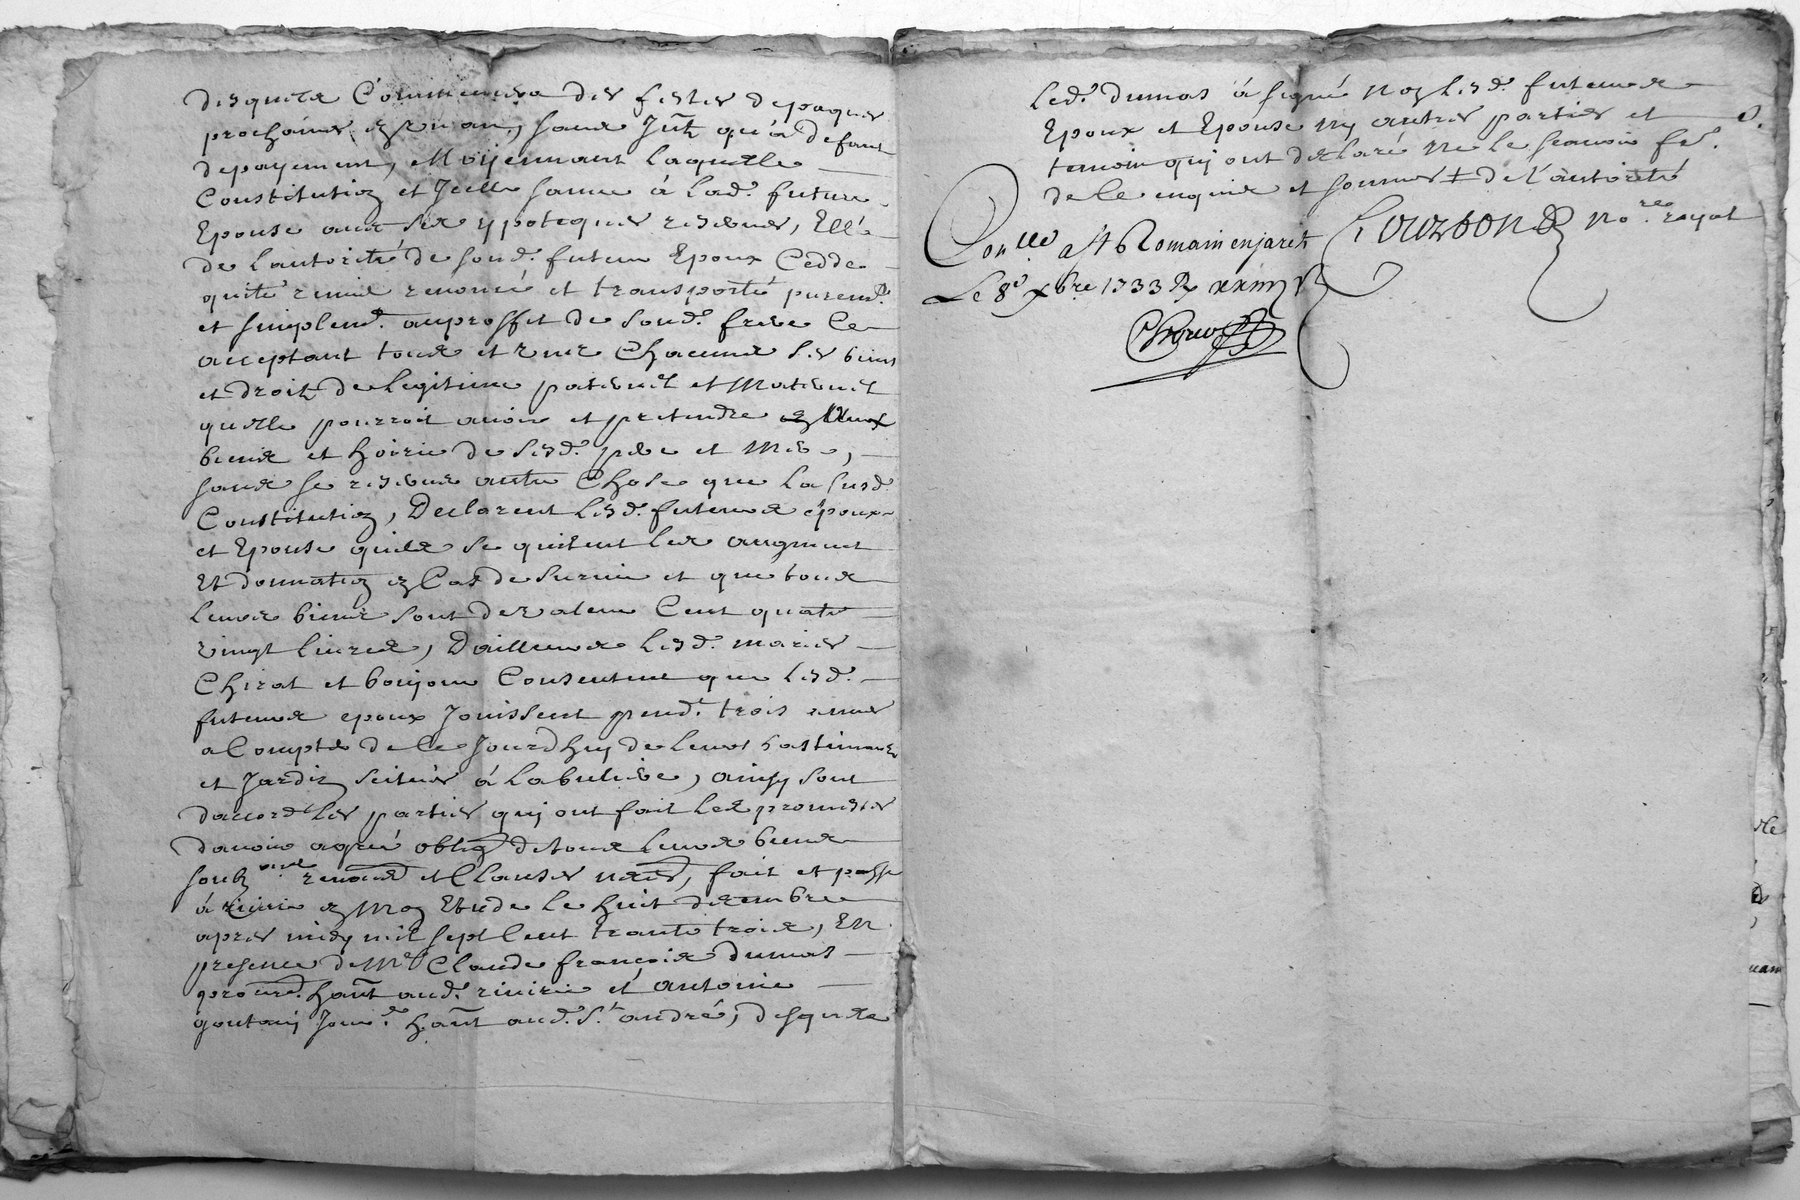 desquels Commencera des festes depaques
prochaines en un an, sans Jnt. qu'a defaut
depayement, Moyennant laquelle
Constitution et Jcelle sauve à lad. future
Epouse avec ses ypoteques reservées, Elle
de l'autorité de sond. futur Epoux Cedde
quitte remet renonce et transporte purem.t
et simplem.t auproffit de sond. frere Ce
acceptant tous et uns Chacuns ses biens
et droits de legitime paternel et Maternel
quelle pourroit avoir et pretendre
biens et hoirie de sesd. pere et Mere,
sans se reserver autre Chose que la susd.
Constitution, Declarent lesd. futeurs époux
et Epouse quils se quitent les augment
Et donnation en Cas de survie et que tous
leurs biens sont de valeur Cent quatre
vingt livres, Dailleurs lesd. maries
Chirat et bonjour Consentent que lesd.
futeurs epoux Jouissent pend.t trois années
a Compter de Ce Jourdhuy de leurs bastiments
et Jardin scitués à La , ainsy sont
daccord les parties qui ont fait les promesses
davoir agreé oblig. detous leurs biens
renon. et Clauses necess., fait et passé
à rivirie en Mon Etude le huit decembre
apres midy mil sept Cent trante trois, En
presence de M.e Claude françois dumas
procur. hant. aud. riviric et antoine
Jour. hant. aud. S.t andré, desquels
led. dumas à signé Non lesd. futeurs
Epoux et Epouse ny autres parties et
temoin qui ont declaré Ne le scavoir fe.
de ce enquis et sommés ‡ de l'autorité
Con.lle a St Romain enjarets
Courbon No.re royal
Le 8e xbre 1733 R